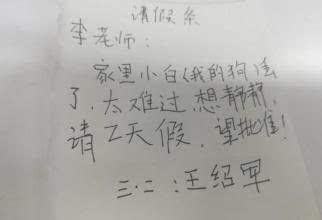 请假条
李老师：
家里小白（我的狗）走
了，太难过，想静静，
请2天假，望批准！
三.二：王绍军